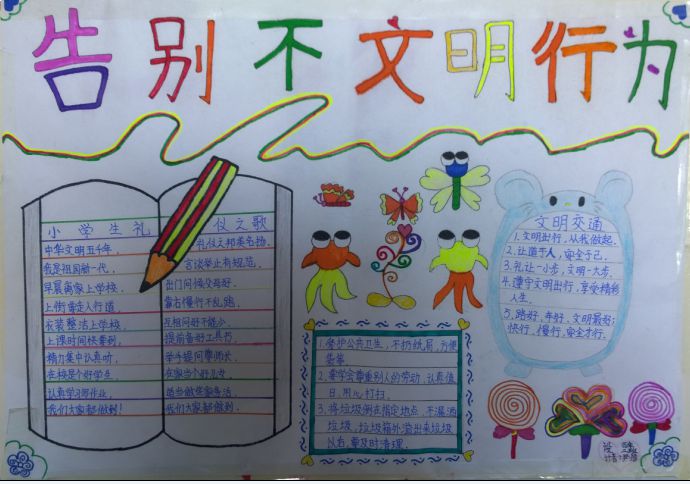 告别不文明行为
小学生礼仪之歌
中华文明五千年,
礼仪之邦美名扬,
我是祖国新一代,
言谈举止有规范。
早晨离家上学校,
出门问候父母好。
上街靠走人行道,
靠右慢行不乱跑。
衣装整洁上学校,
互相问好不能少。
上课时间快要到,
提前备好工具书。
精力集中认真听,
举手提问尊师长。
在校是个好学生,
在家当个好儿女。
认真学习写作业,
适当做些家务活。
我们大家都做到!
我们大家都做到.
1.爱护公共卫生,不扔纸屑,方便
袋等.
2.要学会尊重别人的劳动,认真值
日,用心打扫.
3.将垃圾倒在指定地点,不漏洒
垃圾,垃圾箱外溢出来垃圾
以后,要及时清理.
文明交通
1.文明出行,从我做起.
2.让道于人,安全于己.
3.礼让一小步,文明一大步.
4.遵守文明出行,享受精彩
人生.
5.路好,车好,文明最好;
快行,慢行,安全才行.